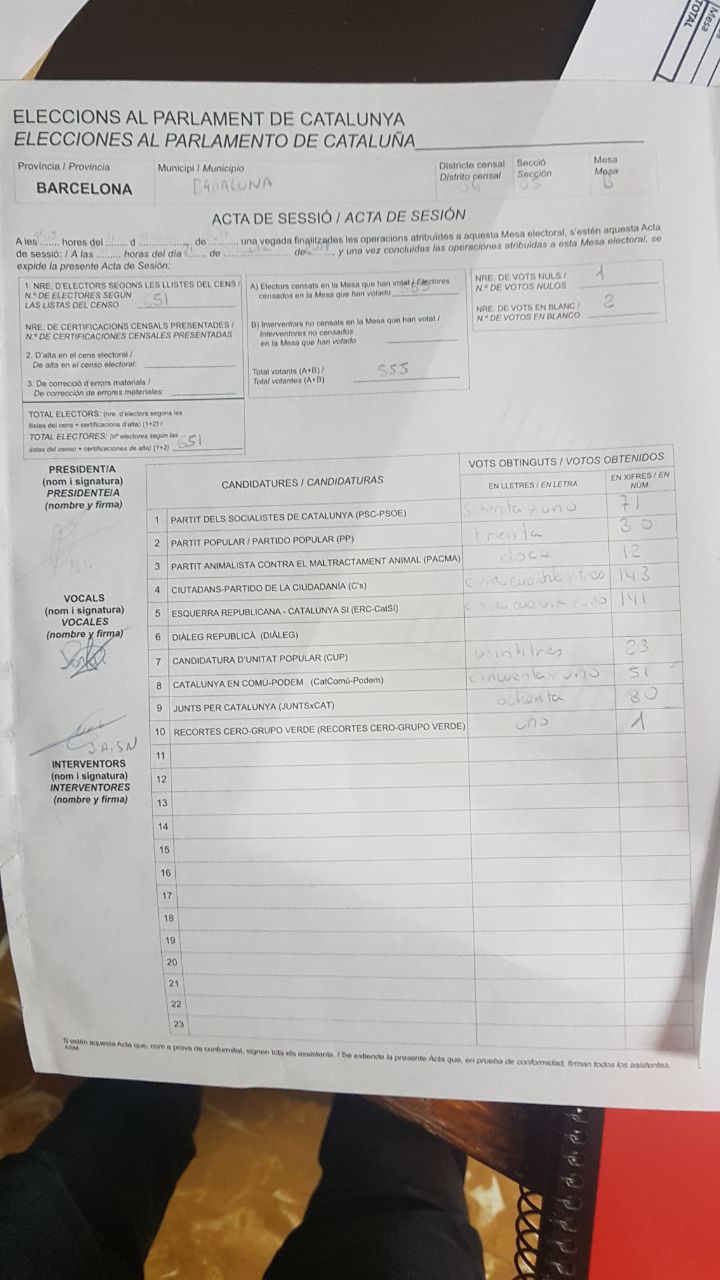 TOTAL
Mesa
ELECCIONS AL PARLAMENT DE CATALUNYA
ELECCIONES AL PARLAMENTO DE CATALUÑA
Província / Provincia
BARCELONA
Municipi / Municipio
BADALONA
Districte censal
Distrito censal
04
Secció
Sección
05
Mesa
Mesa
B
ACTA DE SESSIÓ / ACTA DE SESIÓN
A les ....... hores del ....... d ................ de ........., una vegada finalitzades les operacions atribuïdes a aquesta Mesa electoral, s'estén aquesta Acta
de sessió: / A las ........ horas del día ...... de ..................... de .........., y una vez concluidas las operaciones atribuidas a esta Mesa electoral, se
expide la presente Acta de Sesión:
1. NRE. D'ELECTORS SEGONS LES LLISTES DEL CENS /
N.º DE ELECTORES SEGÚN
LAS LISTAS DEL CENSO 651
NRE. DE CERTIFICACIONS CENSALS PRESENTADES /
N.º DE CERTIFICACIONES CENSALES PRESENTADAS
2. D'alta en el cens electoral /
De alta en el censo electoral:
3. De correcció d'errors materials /
De corrección de errores materiales:
TOTAL ELECTORS: (nre. d'electors segons les
llistes del cens + certificacions d'alta) (1+2) /
TOTAL ELECTORES: (nº electores según las
listas del censo + certificaciones de alta) (1+2) 651
A) Electors censats en la Mesa que han votat / Electores
censados en la Mesa que han votado 555
B) Interventors no censats en la Mesa que han votat /
Interventores no censados
en la Mesa que han votado
Total votants (A+B) /
Total votantes (A+B) 555
NRE. DE VOTS NULS / 1
N.º DE VOTOS NULOS
NRE. DE VOTS EN BLANC / 2
N.º DE VOTOS EN BLANCO
PRESIDENT/A
(nom i signatura)
PRESIDENTE/A
(nombre y firma)
VOCALS
(nom i signatura)
VOCALES
(nombre y firma)
J.A.SN
INTERVENTORS
(nom i signatura)
INTERVENTORES
(nombre y firma)
CANDIDATURES / CANDIDATURAS
VOTS OBTINGUTS / VOTOS OBTENIDOS
EN LLETRES / EN LETRA
EN XIFRES / EN
NÚM.
1 PARTIT DELS SOCIALISTES DE CATALUNYA (PSC-PSOE) setenta y uno 71
2 PARTIT POPULAR / PARTIDO POPULAR (PP) treinta 30
3 PARTIT ANIMALISTA CONTRA EL MALTRACTAMENT ANIMAL (PACMA) doce 12
4 CIUTADANS-PARTIDO DE LA CIUDADANÍA (C's) 143
5 ESQUERRA REPUBLICANA - CATALUNYA SI (ERC-CatSí) 141
6 DIÀLEG REPUBLICÀ (DIÀLEG)
7 CANDIDATURA D'UNITAT POPULAR (CUP) vintitres 23
8 CATALUNYA EN COMÚ-PODEM (CatComú-Podem) cinquenta y uno 51
9 JUNTS PER CATALUNYA (JUNTSxCAT) ochenta 80
10 RECORTES CERO-GRUPO VERDE (RECORTES CERO-GRUPO VERDE) uno 1
11
12
13
14
15
16
17
18
19
20
21
22
23
S'estén aquesta Acta que, com a prova de conformitat, signen tots els assistents. / Se extiende la presente Acta que, en prueba de conformidad, firman todos los asistentes.